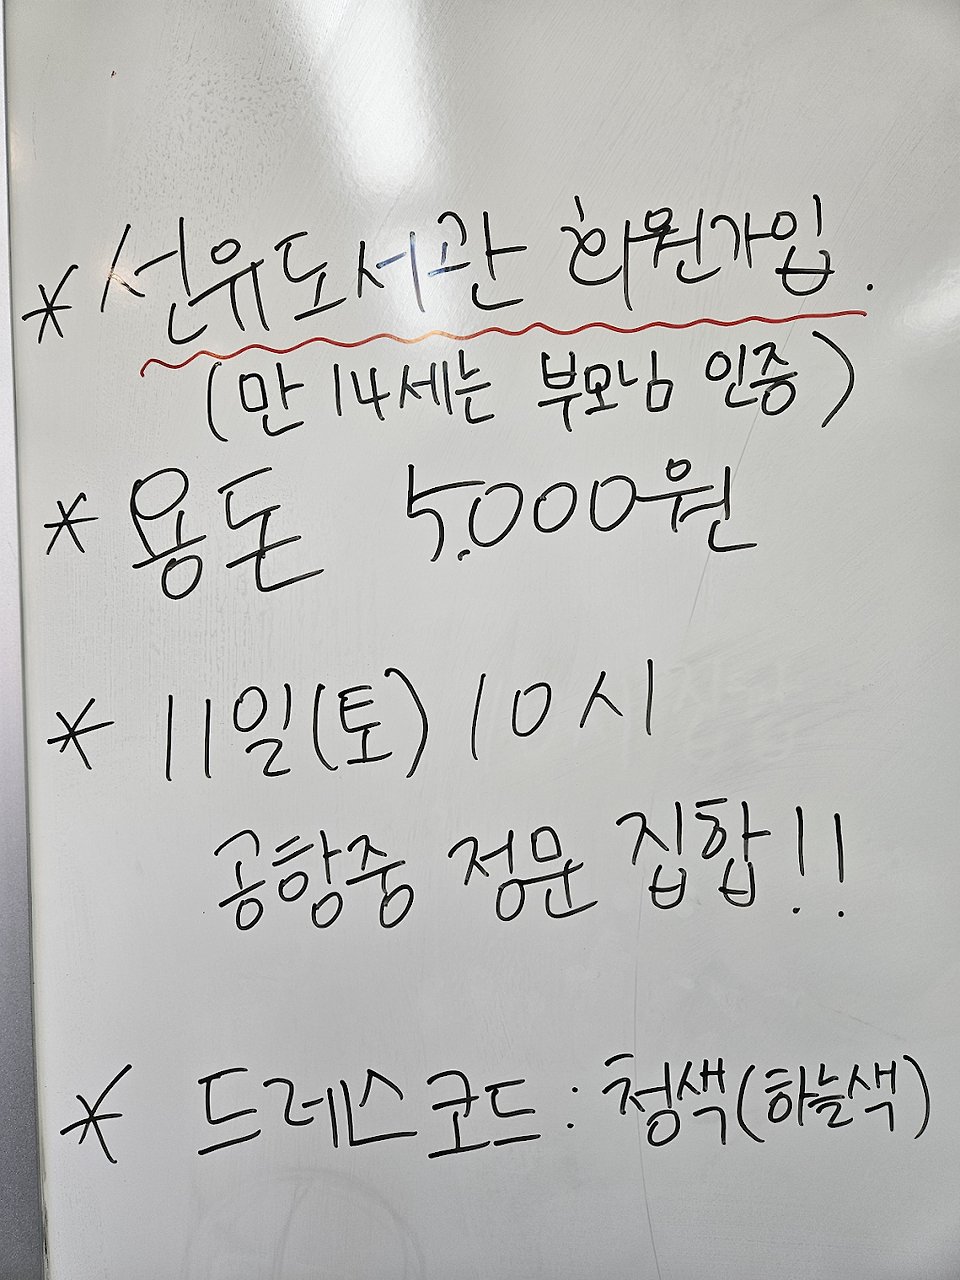 * 선유도서관 회원가입.
(만 14세는 부모님 인증)
* 용돈 5,000원
* 11일(토) 10시
공항중 정문 집합!!
* 드레스코드 : 청색(하늘색)